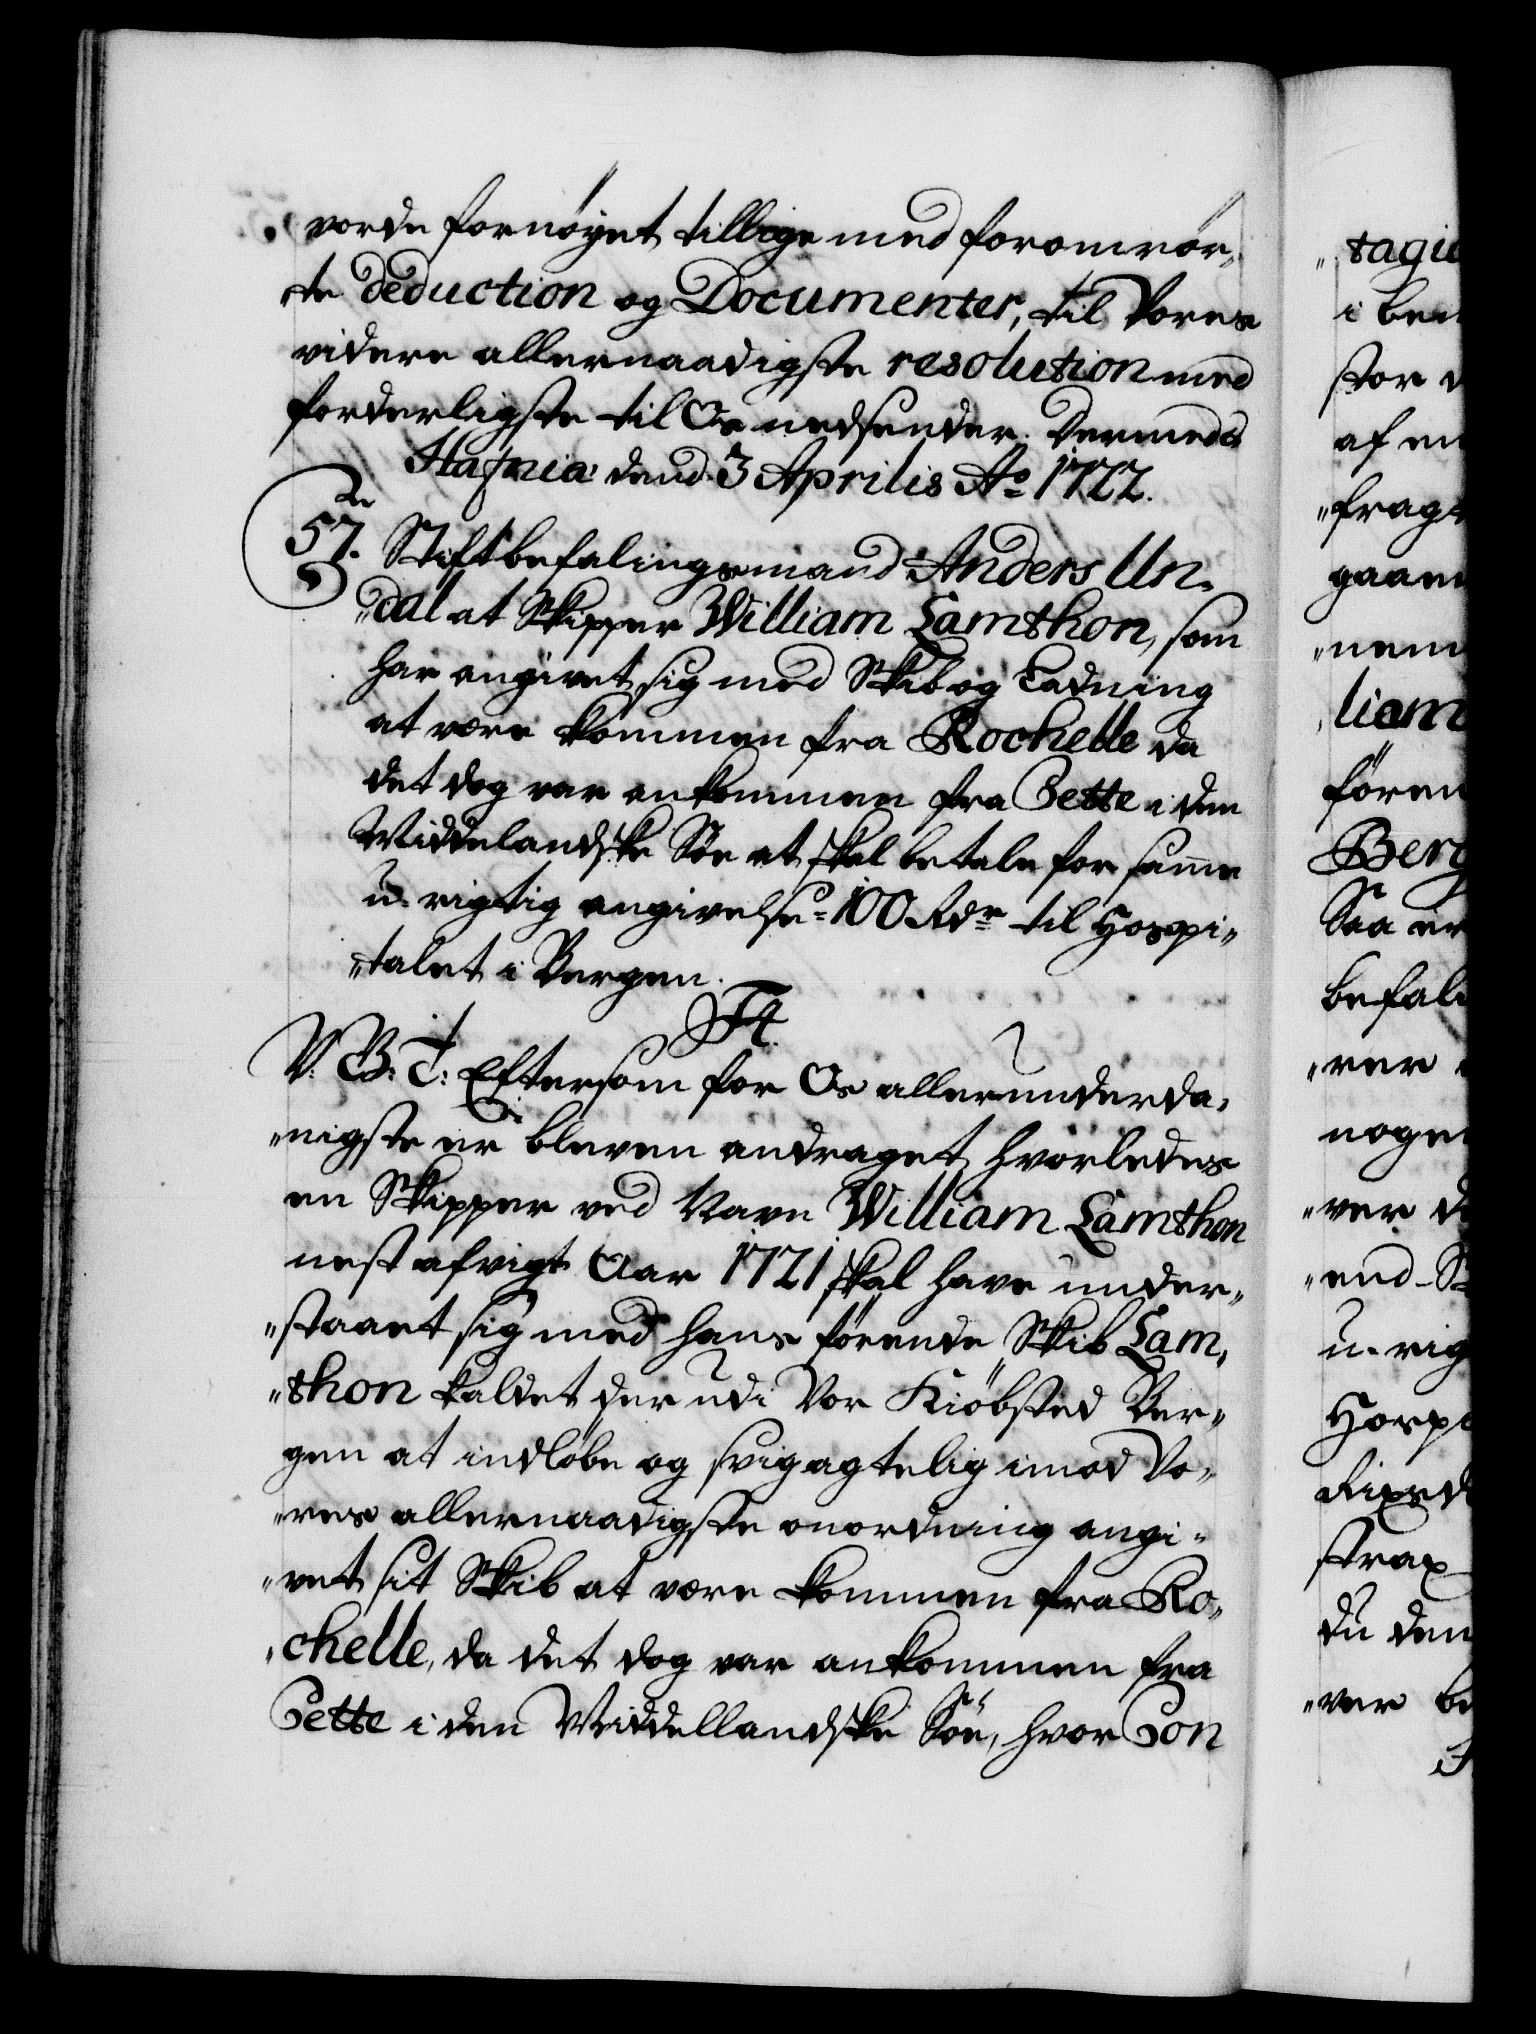 vorde fornøyet tillige med foromrør,
te deduction og Documenter, til Vores
videre allernaadigste resolution med
forderligste til Os nedsender. Dermed
Hafniæ dend 3 Aprilis Ao 1722.
57. Stiftbefalingsmand Anders Un-
"dal at Skipper William Lamthon, som
har angivet sig med Skib og Ladning
at være kommen fra Rochelle da
det dog var ankommen fra Cette i den
Middelandske Søe at skal betale for samme
u-rigtig angivelse 100 Rdr til Hospi"
"talet i Bergen.
F4.
V. G. T: Eftersom for Os allerunderda,
"nigste er bleven andraget, hvorledes
en Skipper ved Navn William Lamthon
nest afvigt Aar 1721 skal have under"
"staaet sig med hans førende Skib Lam,
"thon kaldet der udi Vor Kiöbsted Ber"
gen at indløbe og svigagtelig imod Vo"
"res allernaadigste anordning angi"
"vet sit Skib at være kommen fra Ro"
"chelle, da det dog var ankommen fra
Cette i den Middellandske Söe, hvor Con
"tagio
i bem
stor
af en
"fragt
gaaen
"nem
liam
føren
Berg
Saa er
befale
"rer
noge
"ver
"end
u-rig
Hospi
Rixd
strax
du den
"ver be